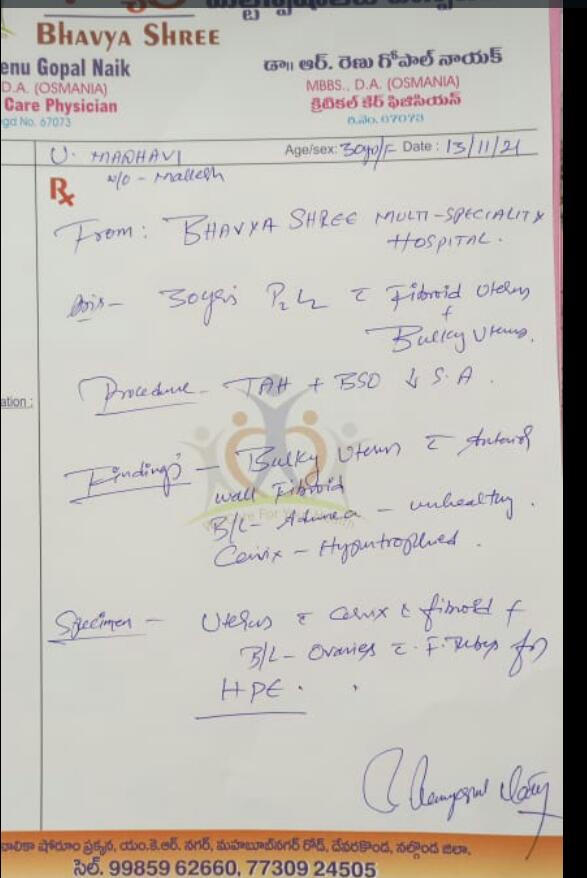 BHAVYA SHREE
enu Gopal Naik
D.A. (OSMANIA)
Care Physician
gd No. 67073
డా॥ ఆర్. రెణు గోపాల్ నాయక్
MBBS., D.A. (OSMANIA)
క్రిటికల్ కేర్ ఫిజిసియన్
రి.నెం. 67073
U. MADHAVI Age/sex: 30yo/F Date : 13/11/21
W/O - Mallesh
Rx
From : BHAVYA SHREE MULTI-SPECIALITY
HOSPITAL.
30yrs P2L2 c̄ Fibroid Uterus
+
Bulky Uterus.
Procedure - TAH + BSO ↓ S.A.
ation :
Findings - Bulky Uterus c̄ Anterior
wall Fibroid
B/L - Adnexa - unhealthy.
We Care For Your Health
Cervix - Hypertrophied.
Specimen - Uterus c̄ Cervix c̄ fibroid +
B/L - Ovaries c̄ F. Tubes for
HPE.
షోరూం ప్రక్కన, యం.కె.ఆర్. నగర్, మహబూబ్‌నగర్ రోడ్, దేవరకొండ, నల్గొండ జిల్లా,
సెల్. 99859 62660, 77309 24505